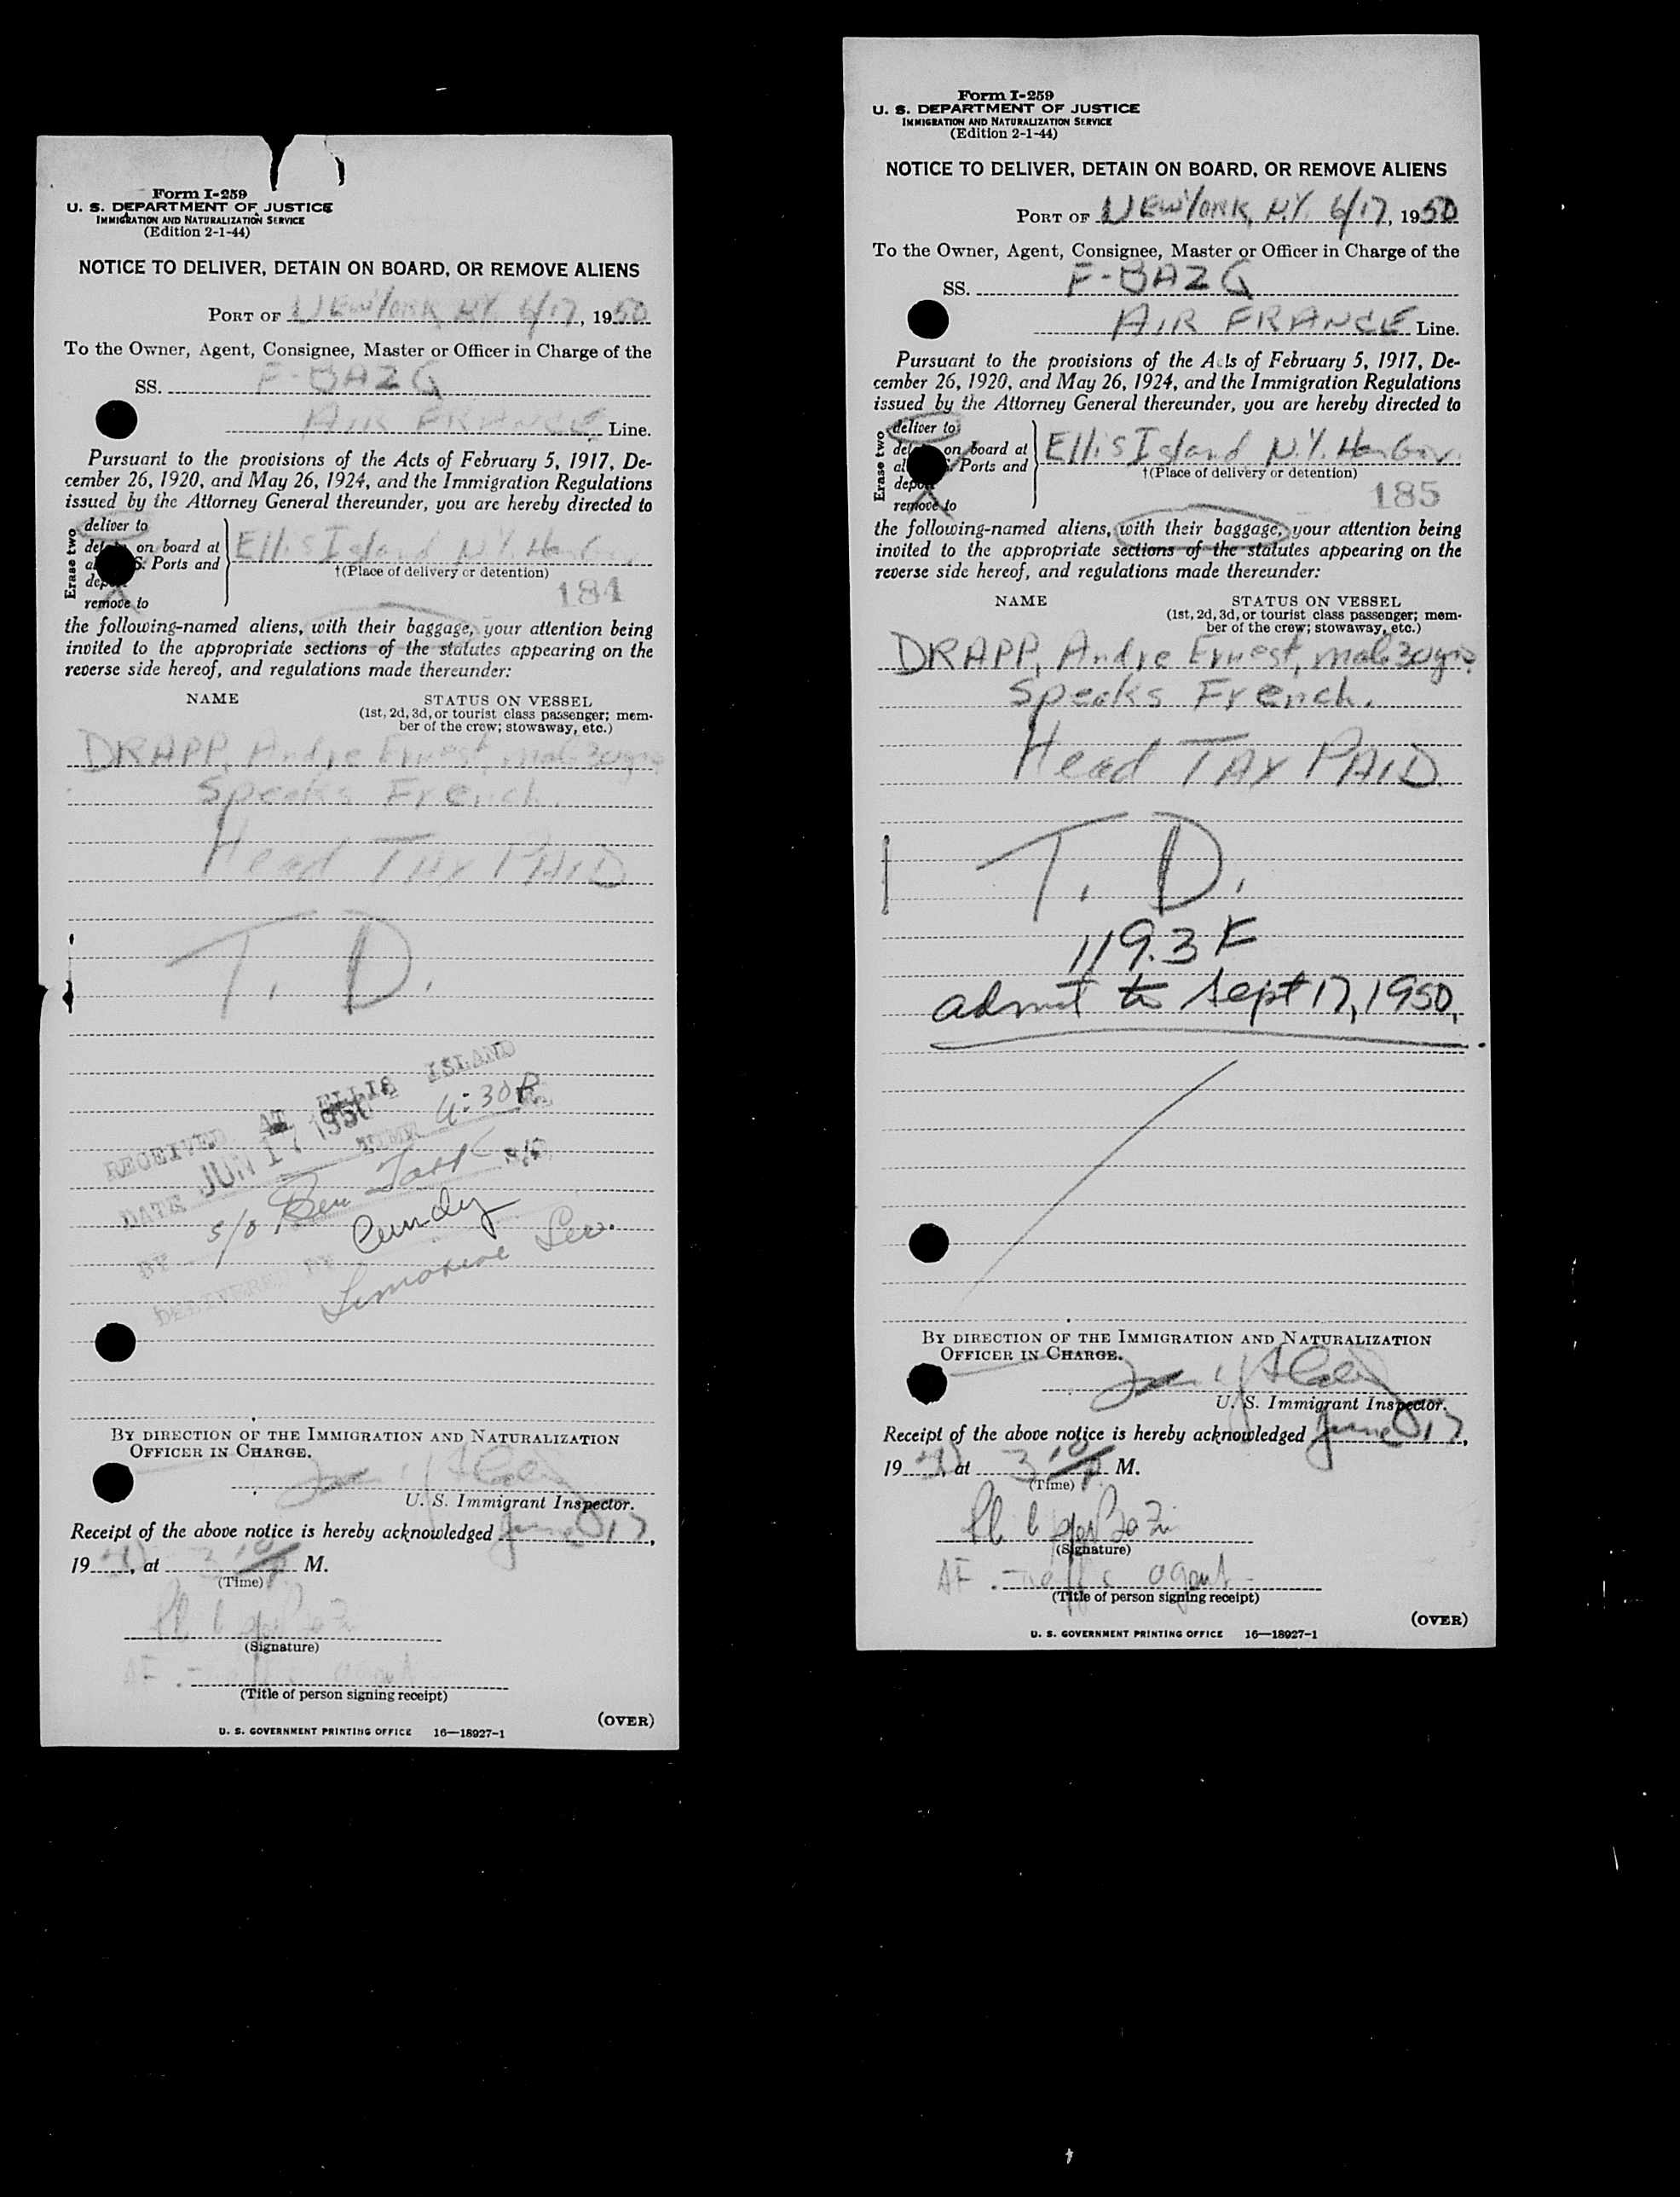 Form I-259
U. S. DEPARTMENT OF JUSTICE
IMMIGRATION AND NATURALIZATION SERVICE
(Edition 2-1-44)
NOTICE TO DELIVER, DETAIN ON BOARD, OR REMOVE ALIENS
PORT OF NEW YORK NY 6/17, 1950
To the Owner, Agent, Consignee, Master or Officer in Charge of the
SS. F-BAZG
AIR FRANCE Line.
Pursuant to the provisions of the Acts of February 5, 1917, De-
cember 26, 1920, and May 26, 1924, and the Immigration Regulations
issued by the Attorney General thereunder, you are hereby directed to
Erase two
deliver to
on board at
S. Ports and
remove to
Ellis Island N.Y.
†(Place of delivery or detention)
184
the following-named aliens, with their baggage, your attention being
invited to the appropriate sections of the statutes appearing on the
reverse side hereof, and regulations made thereunder:
NAME STATUS ON VESSEL
(1st, 2d, 3d, or tourist class passenger; mem-
ber of the crew; stowaway, etc.)
DRAPP, Andre Ernest, male 30 yrs
Speaks French.
Head TAX PAID
T. D.
RECEIVED AT ELLIS ISLAND
DATE JUN 17 1950 TIME 4:30 P
BY S/O Ben
DELIVERED BY Cundy
Limousine Ser.
BY DIRECTION OF THE IMMIGRATION AND NATURALIZATION
OFFICER IN CHARGE.
U. S. Immigrant Inspector.
Receipt of the above notice is hereby acknowledged June 17,
19 , at 3 10/P M.
(Time)
(Signature)
AF. agent
(Title of person signing receipt)
(OVER)
U. S. GOVERNMENT PRINTING OFFICE 16—18927-1
Form I-259
U. S. DEPARTMENT OF JUSTICE
IMMIGRATION AND NATURALIZATION SERVICE
(Edition 2-1-44)
NOTICE TO DELIVER, DETAIN ON BOARD, OR REMOVE ALIENS
PORT OF NEW YORK, N.Y. 6/17, 1950
To the Owner, Agent, Consignee, Master or Officer in Charge of the
SS. F-BAZG
AIR FRANCE Line.
Pursuant to the provisions of the Acts of February 5, 1917, De-
cember 26, 1920, and May 26, 1924, and the Immigration Regulations
issued by the Attorney General thereunder, you are hereby directed to
Erase two
deliver to
on board at
Ports and
remove to
Ellis Island N.Y.
†(Place of delivery or detention)
185
the following-named aliens, with their baggage, your attention being
invited to the appropriate sections of the statutes appearing on the
reverse side hereof, and regulations made thereunder:
NAME STATUS ON VESSEL
(1st, 2d, 3d, or tourist class passenger; mem-
ber of the crew; stowaway, etc.)
DRAPP, Andre Ernest, male 30 yrs.
Speaks French.
Head TAX PAID
T. D.
119.3 F
admit to Sept 17, 1950.
BY DIRECTION OF THE IMMIGRATION AND NATURALIZATION
OFFICER IN CHARGE.
U. S. Immigrant Inspector.
Receipt of the above notice is hereby acknowledged June 17,
19 , at 3 10/P M.
(Time)
(Signature)
AF. traffic agent
(Title of person signing receipt)
(OVER)
U. S. GOVERNMENT PRINTING OFFICE 16—18927-1